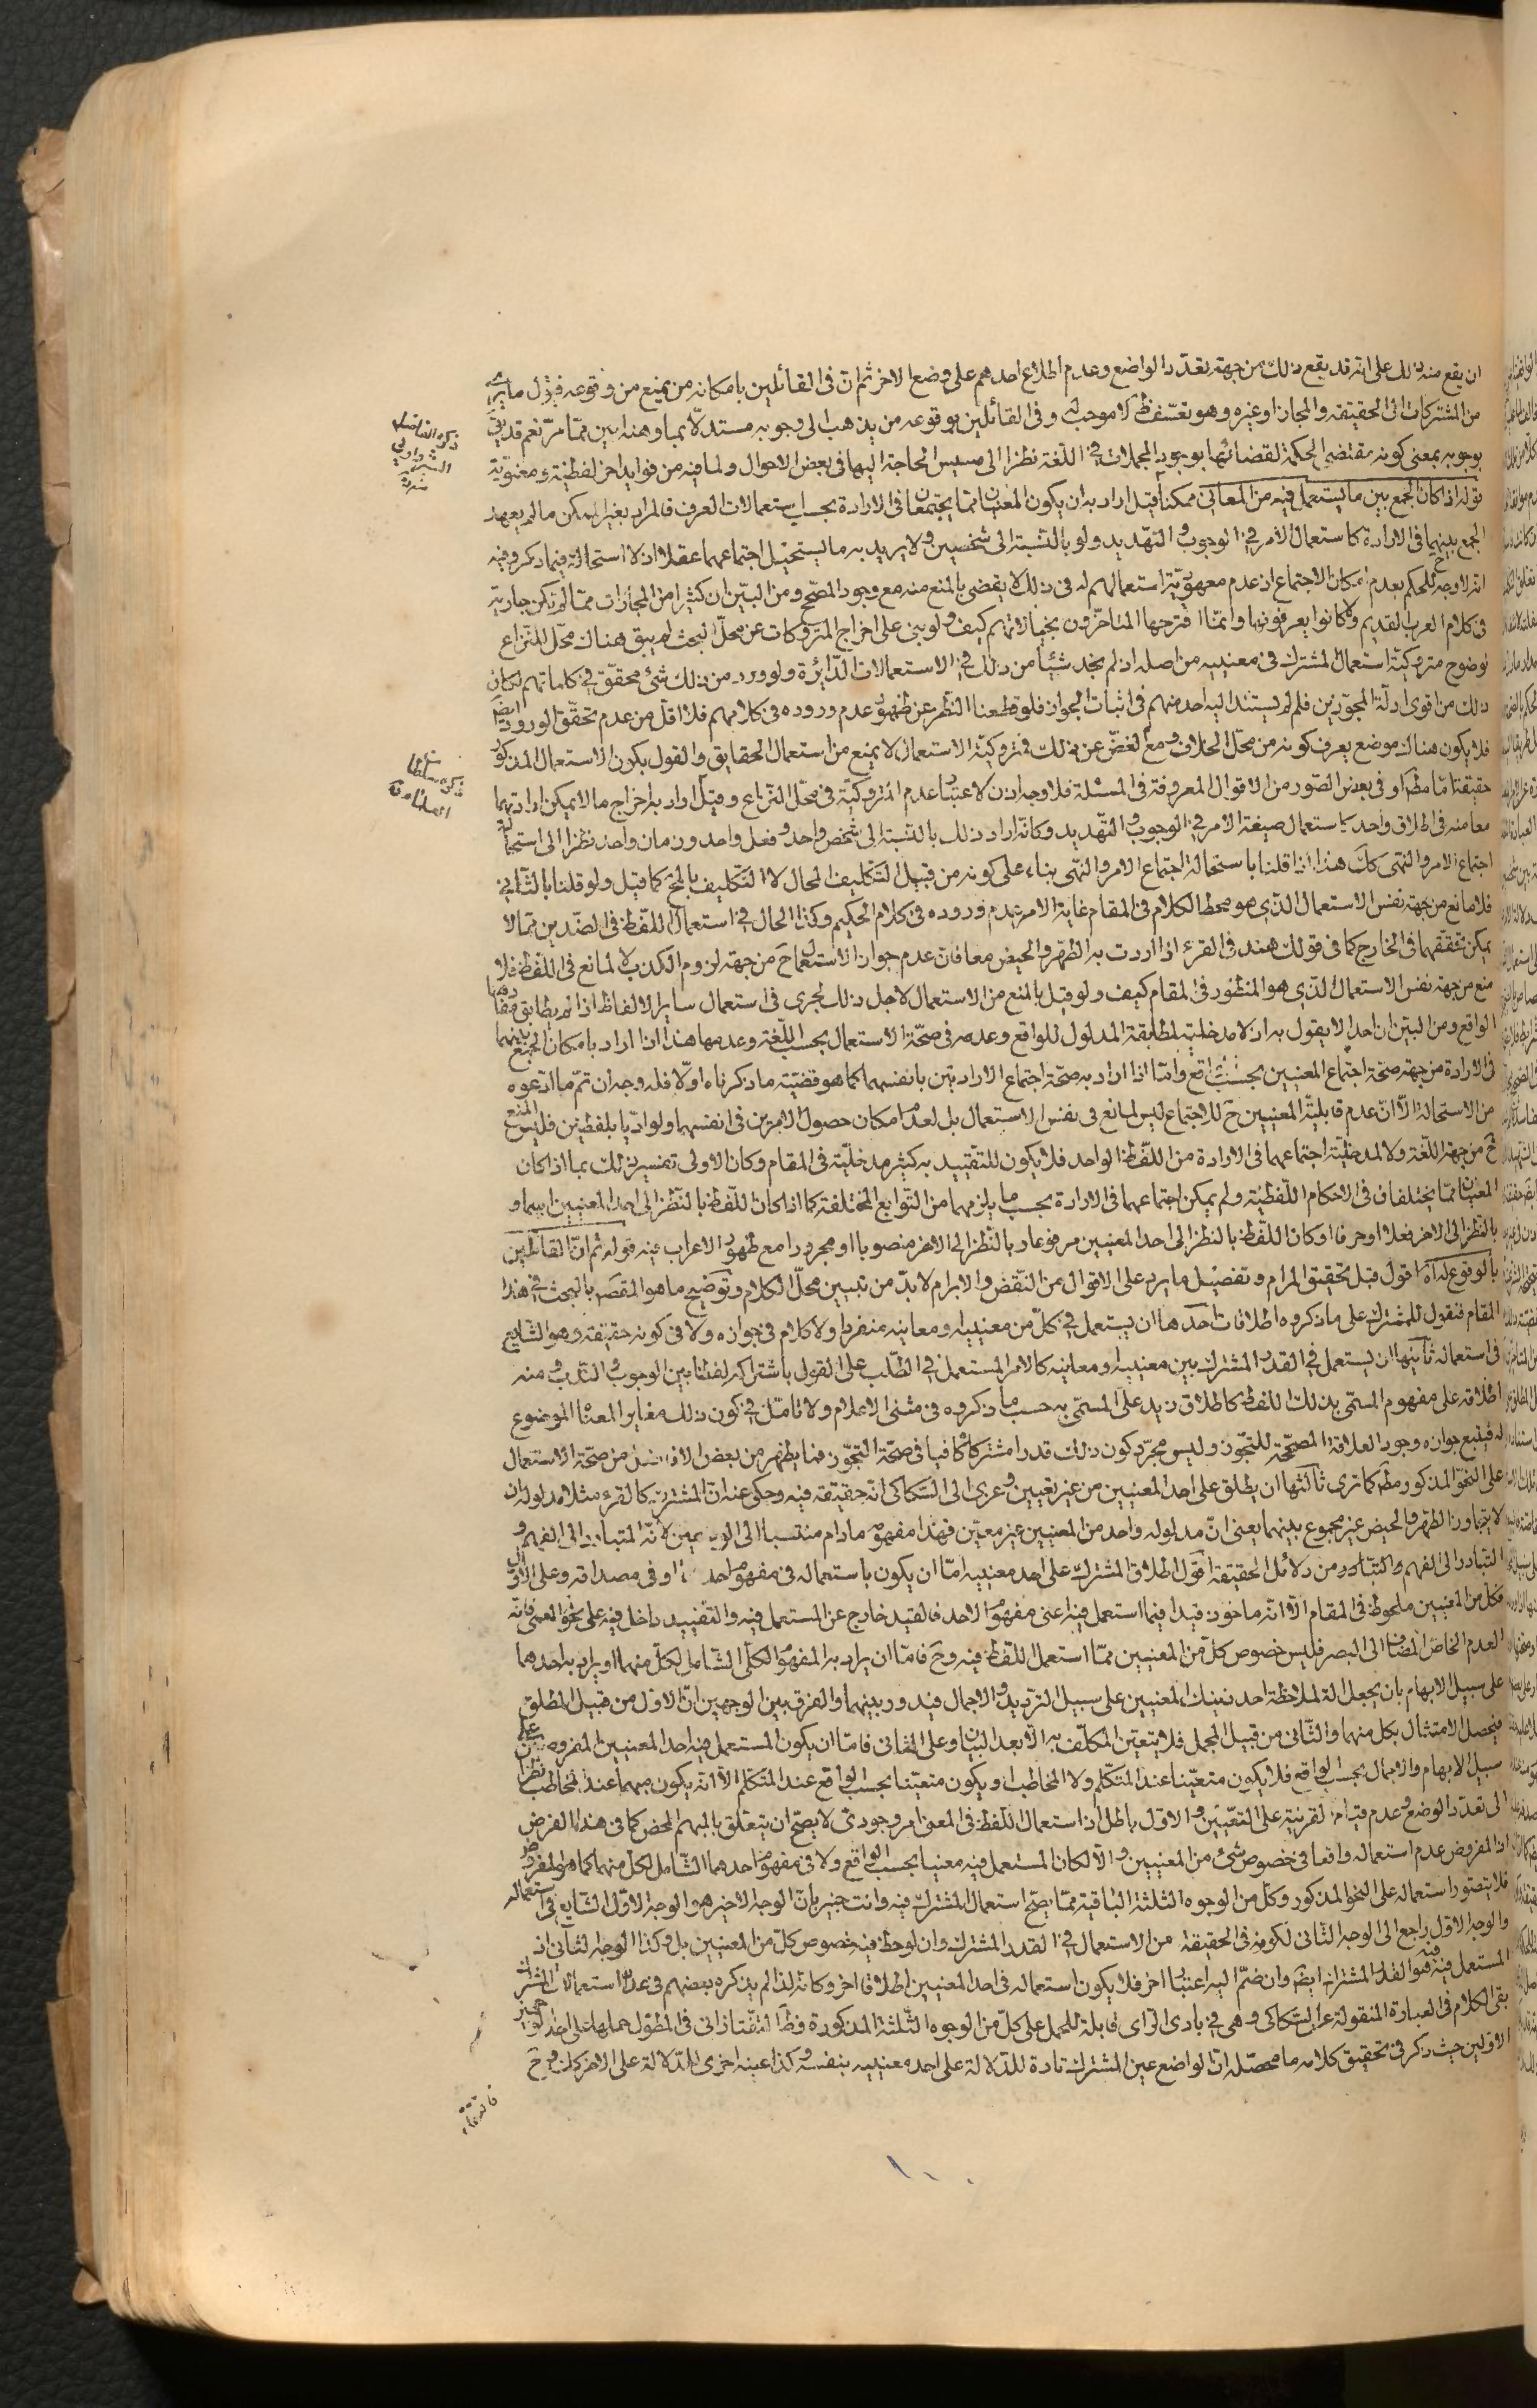 ان يقع منه ذلك على انه قد يقع ذلك من جهة تعدّد الواضع وعدم اطلاع احدهم على وضع الاخر ثم انّ فى القائلين بامكانه من يمنع من وقوعه فيؤل ما يرى
من المشتركات الى الحقيقة والمجاز او غيره وهو تعسّف ظ لا موجب له وفى القائلين بوقوعه من يذهب الى وجوبه مستدلّا بما وهنه بين ممّا مرّ نعم قد يق
بوجوبه بمعنى كونه مقتضى الحكمة لقضائها بوجود المجملات فى اللّغة نظرا الى مسيس الحاجة اليها فى بعض الاحوال ولما فيه من فوايد اخر لفظيّة ومعنويّة
قوله اذا كان الجمع بين ما يستعمل فيه من المعانى ممكنا قيل اراد به ان يكون المعنيان ممّا يجتمعان فى الارادة بحسب استعمالات العرف فالمراد بغير الممكن ما لم يعهد
الجمع بينهما فى الارادة كاستعمال الامر فى الوجوب والتهديد ولو بالنّسبة الى شخصين ولا يريد به ما يستحيل اجتماعهما عقلا اذ لا استحالة فيما ذكر وفيه
انّه لا وجه للحكم بعدم امكان الاجتماع اذ عدم معهوديّة استعمالهم له فى ذلك لا يقضى بالمنع منه مع وجود المصحّح ومن البيّن ان كثيرا من المجازات ممّا لم تكن جارية
فى كلام العرب القديم ولا كانوا يعرفونها وانّما اقترحها المتاخّرون بخيالاتهم كيف ولو بنى على اخراج المتروكات عن محلّ البحث لم يبق هناك محلّ للنّزاع
لوضوح متروكيّة استعمال المشترك فى معنييه من اصله اذ لم نجد شيئا من ذلك فى الاستعمالات الدّايرة ولو ورد من ذلك شئ محقّق فى كلماتهم لكان
ذلك من اقوى ادلّة المجوّزين فلم لم يستند اليه احد منهم فى اثبات الجواز فلو قطعنا النّظر عن ظهور عدم وروده فى كلامهم فلا اقلّ من عدم تحقّق الورود ايضا
فلا يكون هناك موضع يعرف كونه من محلّ الخلاف ومع الغضّ عن ذلك فمتروكيّة الاستعمال لا يمنع من استعمال الحقايق والقول بكون الاستعمال المذكور
حقيقة امّا مط او فى بعض الصّور من الاقوال المعروفة فى المسئلة فلا وجه اذن لاعتبار عدم المتروكيّة فى محلّ النّزاع وقيل اراد به اخراج ما لا يمكن ارادتهما
معا منه فى اطلاق واحد كاستعمال صيغة الامر فى الوجوب والتّهديد وكانّه اراد ذلك بالنّسبة الى شخص واحد وفعل واحد وزمان واحد نظرا الى استحالة
اجتماع الامر والنّهى كك هذا اذا قلنا باستحالة اجتماع الامر والنّهى بناء على كونه من قبيل التّكليف المحال لا التّكليف بالمح كما قيل ولو قلنا بالثّانى
فلا مانع من جهة نفس الاستعمال الذّى هو محط الكلام فى المقام غاية الامر عدم وروده فى كلام الحكيم وكذا الحال فى استعمال اللّفظ فى الضّدين ممّا لا
يمكن تحقّقهما فى الخارج كما فى قولك هند فى القرء اذا اردت به الطّهر والحيض معا فانّ عدم جواز الاستعمال ح من جهة لزوم الكذب لا لمانع فى اللّفظ فلا
منع من جهة نفس الاستعمال الذّى هو المنظور فى المقام كيف ولو قيل بالمنع من الاستعمال لاجل ذلك لجرى فى استعمال ساير الالفاظ اذا لم يطابق معناها
الواقع ومن البيّن ان احدا لا يقول به اذ لا مدخليّة لمطابقة المدلول للواقع وعدمه فى صحّة الاستعمال بحسب اللّغة وعدمها هذا اذا اراد بامكان الجمع بينهما
فى الارادة من جهة صحّة اجتماع المعنيين بحسب الواقع وامّا اذا اراد به صحّة اجتماع الارادتين بانفسهما كما هو قضيّة ما ذكرناه اوّلا فله وجه ان تمّ ما ادّعوه
من الاستحالة الّا انّ عدم قابليّة المعنيين ح للاجتماع ليس لمانع فى نفس الاستعمال بل لعدم امكان حصول الامرين فى انفسهما ولو ادّيا بلفظين فليس المنع
ح من جهة اللّغة ولا لمدخليّة اجتماعهما فى الارادة من اللّفظ الواحد فلا يكون للتّقييد به كثير مدخليّة فى المقام وكان الاولى تفسير ذلك بما اذا كان
المعنيان ممّا يختلفان فى الاحكام اللّفظيّة ولم يمكن اجتماعهما فى الارادة بحسب ما يلزمهما من التّوابع المختلفة كما اذا كان اللّفظ بالنّظر الى احد المعنيين اسما و
بالنّظر الى الاخر فعلا او حرفا او كان اللّفظ بالنظر الى احد المعنيين مرفوعا وبالنّظر الى الاخر منصوبا او مجرورا مع ظهور الاعراب فيه قوله ثم انّ القائلين
بالوقوع له آه اقول قبل تحقيق المرام وتفصيل ما يرد على الاقوال من النّقض والابرام لا بدّ من تبيين محلّ الكلام وتوضيح ما هو المقصود بالبحث فى هذا
المقام فنقول للمشترك على ما ذكروه اطلاقات احدها ان يستعمل فى كلّ من معنييه او معانيه منفردا ولا كلام فى جوازه ولا فى كونه حقيقة وهو الشّايع
فى استعماله ثانيها ان يستعمل فى القدر المشترك بين معنييه او معانيه كالامر المستعمل فى الطّلب على القول باشتراكه لفظا بين الوجوب والنّدب ومنه
اطلاقه على مفهوم المسمّى بذلك اللفظ كاطلاق زيد على المسمّى به حسب ما ذكروه فى مثنى الاعلام ولا تامّل فى كون ذلك مغايرا لمعناه الموضوع
له فيتبع جوازه وجود العلاقة المصحّحة للتجوّز وليس مجرّد كون ذلك قدرا مشتركا كافيا فى صحّة التجوّز فما يظهر من بعض الافاضل من صحّة الاستعمال
على النّحو المذكور مط كما ترى ثالثها ان يطلق على احد المعنيين من غير تعيين وعزى الى السّكاكى انّه حقيقة فيه وحكى عنه انّ المشترك كالقرء مثلا مدلوله ان
لا يتجاوز الطّهر والحيض غير مجموع بينهما يعنى انّ مدلوله واحد من المعنيين غير معيّن فهذا مفهومه ما دام منتسبا الى الوضعين لانّه المتبادر الى الفهم و
التبادر الى الفهم والتبادر من دلائل الحقيقة اقول اطلاق المشترك على احد معنييه امّا ان يكون باستعماله فى مفهوم احدهما او فى مصداقه وعلى الاوّل
فكلّ من المعنيين ملحوظ فى المقام الّا انّه ماخوذ قيدا فيما استعمل فيه اعنى مفهوم الاحد فالقيد خارج عن المستعمل فيه والتّقييد داخل فيه على نحو العمى فانّه
العدم الخاصّ المضاف الى البصر فليس خصوص كلّ من المعنيين ممّا استعمل اللّفظ فيه وح فامّا ان يراد به المفهوم الكلّى الشّامل لكلّ منهما او يراد به احدهما
على سبيل الابهام بان يجعل الة لملاحظة احد ذينك المعنيين على سبيل التّرديد والاجمال فيدور بينهما والفرق بين الوجهين انّ الاوّل من قبيل المطلق
فيحصل الامتثال بكلّ منهما والثّانى من قبيل المجمل فلا يتعيّن المكلّف به الّا بعد البيان وعلى الثانى فامّا ان يكون المستعمل فيه احد المعنيين المفروضين على
سبيل الابهام والاجمال بحسب الواقع فلا يكون متعيّنا عند المتكلّم ولا المخاطب او يكون متعيّنا بحسب الواقع عند المتكلّم الّا انّه يكون مبهما عند المخاطب نظرا
الى تعدّد الوضع وعدم قيام القرينة على التعيين والاوّل باطل اذ استعمال اللّفظ فى المعنى امر وجودى لا يصحّ ان يتعلّق بالمبهم المحض كما فى هذا الفرض
اذ المفروض عدم استعماله واقعا فى خصوص شئ من المعنيين والّا لكان المستعمل فيه معيّنا بحسب الواقع ولا فى مفهوم احدهما الشّامل لكلّ منهما كما هو المفروض
فلا يتصوّر استعماله على النّحو المذكور وكلّ من الوجوه الثّلثة الباقية ممّا يصحّ استعمال المشترك فيه وانت خبير بانّ الوجه الاخير هو الوجه الاوّل الشّايع فى استعماله
والوجه الاوّل راجع الى الوجه الثّانى لكونه فى الحقيقة من الاستعمال فى القدر المشترك وان لوحظ فيه خصوص كلّ من المعنيين بل وكذا الوجه الثّانى اذ
المستعمل فيه هو القدر المشترك ايض وان ضمّ اليه اعتبار اخر فلا يكون استعماله فى احد المعنيين اطلاقا اخر وكانّه لذا لم يذكره بعضهم فى عداد استعمالات المشترك
بقى الكلام فى العبارة المنقولة عن السّكاكى وهى فى بادى الرّاى قابلة للحمل على كلّ من الوجوه الثّلثة المذكورة وظ التفتازانى فى المطوّل حملها على احد الوجهين
الاوّلين حيث ذكر فى تحقيق كلامه ما محصّله انّ الواضع عين المشترك تارة للدّلالة على احد معنييه بنفسه وكذا عينه اخرى للدّلالة على الاخر كك وح
ذكره الفاضل
الشيروانى
منه
ذكره سلطان
العلماء منه